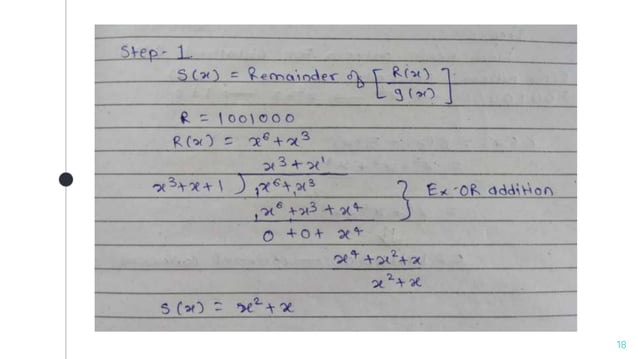 Step-1
S(x) = Remainder of [ R(x) / g(x) ]
R = 1001000
R(x) = x⁶+x³
x³+x¹
x³+x+1 ) x⁶+x³
x⁶+x³+x⁴ } Ex-OR addition
0+0+x⁴
x⁴+x²+x
x²+x
S(x) = x²+x
18